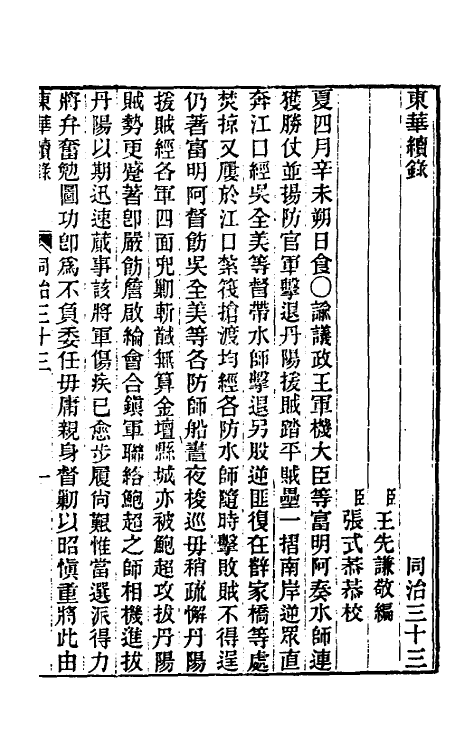 東華續錄
同治三十三
臣王先謙敬編
臣張式恭恭校
夏四月辛未朔日食〇諭議政王軍機大臣等富明阿奏水師連
獲勝仗並揚防官軍擊退丹陽援賊踏平賊壘一摺南岸逆眾直
奔江口經吳全美等督帶水師擊退另股逆匪復在薛家橋等處
焚掠又屢於江口紮筏搶渡均經各防水師隨時擊敗賊不得逞
仍著富明阿督飭吳全美等各防師船晝夜梭巡毋稍疏懈丹陽
援賊經各軍四面兜勦斬馘無算金壇縣城亦被鮑超攻拔丹陽
賊勢更蹙著卽嚴飭詹啟綸會合鎭軍聯絡鮑超之師相機進拔
丹陽以期迅速蕆事該將軍傷疾已愈步履尙艱惟當選派得力
將弁奮勉圖功卽爲不負委任毋庸親身督勦以昭愼重將此由
東華續錄
同治三十三
一